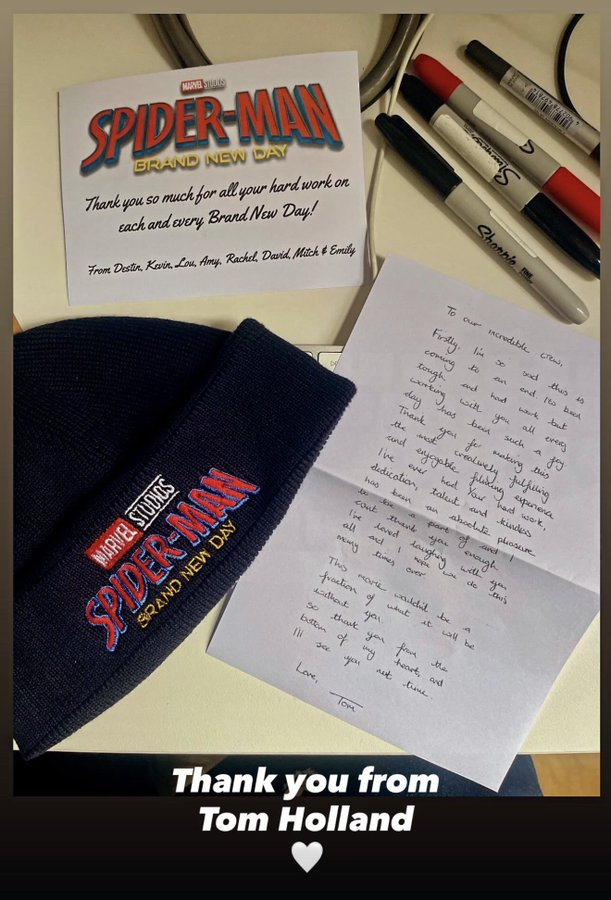 MARVEL STUDIOS
SPIDER-MAN
BRAND NEW DAY
Thank you so much for all your hard work on
each and every Brand New Day!
From Destin, Kevin, Lou, Amy, Rachel, David, Mitch & Emily
Sharpie
FINE
To our incredible crew,
Firstly, I'm so sad this is
coming to an end. It's been
tough and hard work but
working with you all every
day has been such a joy
Thank you for making this
the most creatively fulfilling
and enjoyable filming experience
I've ever had. Your hard work,
dedication, talent and kindness
has been an absolute pleasure
to be a part of and I
cant thank you enough.
I've loved laughing with you
all and I hope we do this
many times over.
This movie wouldn't be a
fraction of what it will be
without you.
So thank you from the
bottom of my heart, and
I'll see you next time.
Love,
Tom
MARVEL STUDIOS
SPIDER-MAN
BRAND NEW DAY
Thank you from
Tom Holland